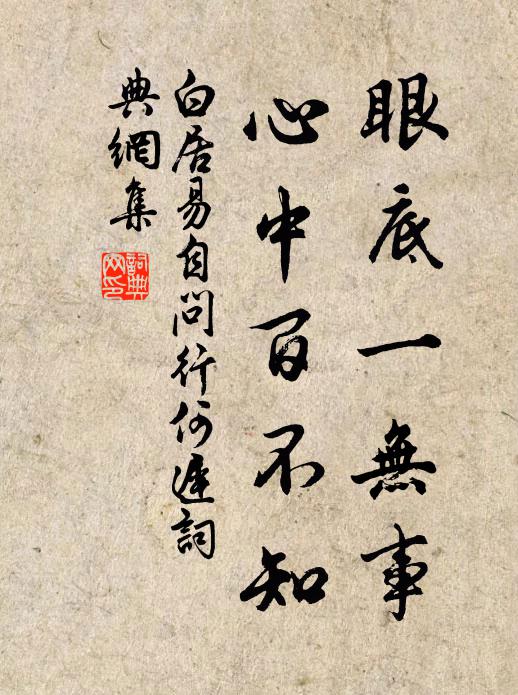 眼底一無事
心中百不知
白居易自問行何遲詞
典網集
詞典
网印